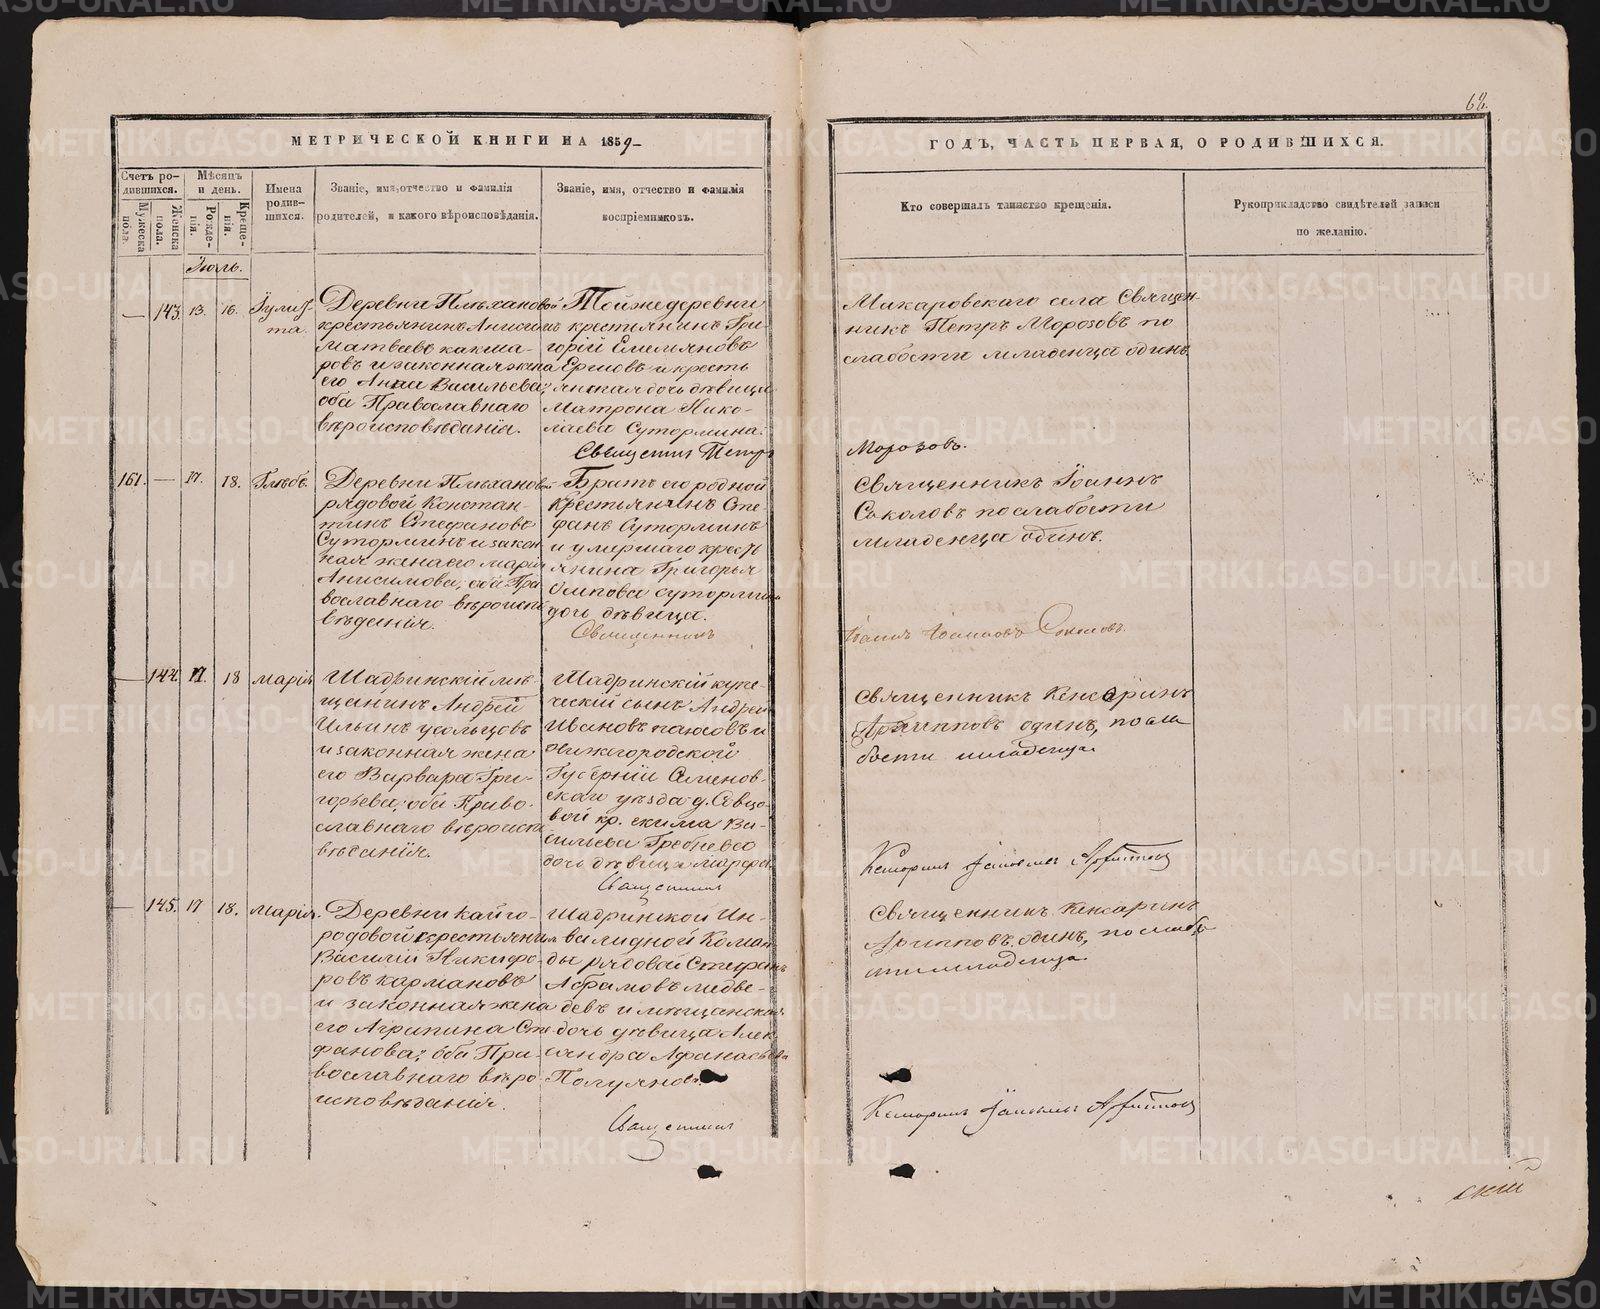 62.
МЕТРИЧЕСКОЙ КНИГИ НА 1859
ГОДЪ, ЧАСТЬ ПЕРВАЯ, О РОДИВШИХСЯ.
Счетъ ро-
дившихся.
Мужеска
пола.
Женска
пола.
Мѣсяцъ
и день.
Рожде-
нія.
Креще-
нія.
Имена
родив-
шихся.
Званіе, имя, отчество и фамилія
родителей, и какого вѣроисповѣданія.
Званіе, имя, отчество и фамилія
воспріемниковъ.
Кто совершалъ таинство крещенія.
Рукоприкладство свидѣтелей записи
по желанію.
Іюль.
— 143. 13. 16.
Іулит-
та.
Деревни
крестьянинъ
Матвѣевъ
ровъ и законная жена
его Анна Васильева;
оба Православнаго
вѣроисповѣданія.
Тойже деревни
крестьянинъ Гри-
горій Емельяновъ
Ершовъ и кресть
янская дочь дѣвица
Матрона Нико-
лаева Сутормина.
Священникъ Петръ
Макаровскаго села Священ-
никъ Петръ Морозовъ по
слабости младенца одинъ.
Морозовъ.
161. — 17. 18.
Глѣбъ.
Деревни
рядовой Констан-
тинъ Стефановъ
Суторминъ и закон
ная жена его Марія
Анисимова; оба Пра
вославнаго вѣроиспо
вѣданія.
Братъ его родной
крестьянинъ Сте
фанъ Суторминъ
и умершаго кресть
янина Григорья
Осипова Сутормина
дочь дѣвица.
Священникъ
Священникъ Іоаннъ
Соколовъ по слабости
младенца одинъ.
Іоаннъ Іоанновъ Соколовъ.
— 144. 17. 18
Марія
Шадринскій мѣ-
щанинъ Андрей
Ильинъ Усольцовъ
и законная жена
его Варвара Гри-
горьева; оба Право-
славнаго вѣроиспо
вѣданія.
Шадринскій купе-
ческій сынъ Андрей
Ивановъ и
Нижегородской
Губерніи Семенов-
скаго уѣзда д.
вой кр. Ва-
сильева
дочь дѣвица Марфа
Священникъ
Священникъ Кенсаринъ
Архиповъ одинъ, по сла
бости младенца.
Кенсаринъ
— 145. 17 18.
Марія.
Деревни Кайго-
родовой крестьянинъ
Василій Никифо-
ровъ Кармановъ
и законная жена
его Агрипина Сте
фанова; оба Пра-
вославнаго вѣро
исповѣданія.
Шадринской Ин-
валидной Коман-
ды рядовой Стефанъ
Абрамовъ Медве-
девъ и мѣщанская
дочь дѣвица Алек
сандра Афанасьева
Священникъ
Священникъ Кенсаринъ
Архиповъ одинъ, по слабо
сти младенца.
Кенсаринъ
скій
METRIKI.GASO-URAL.RU